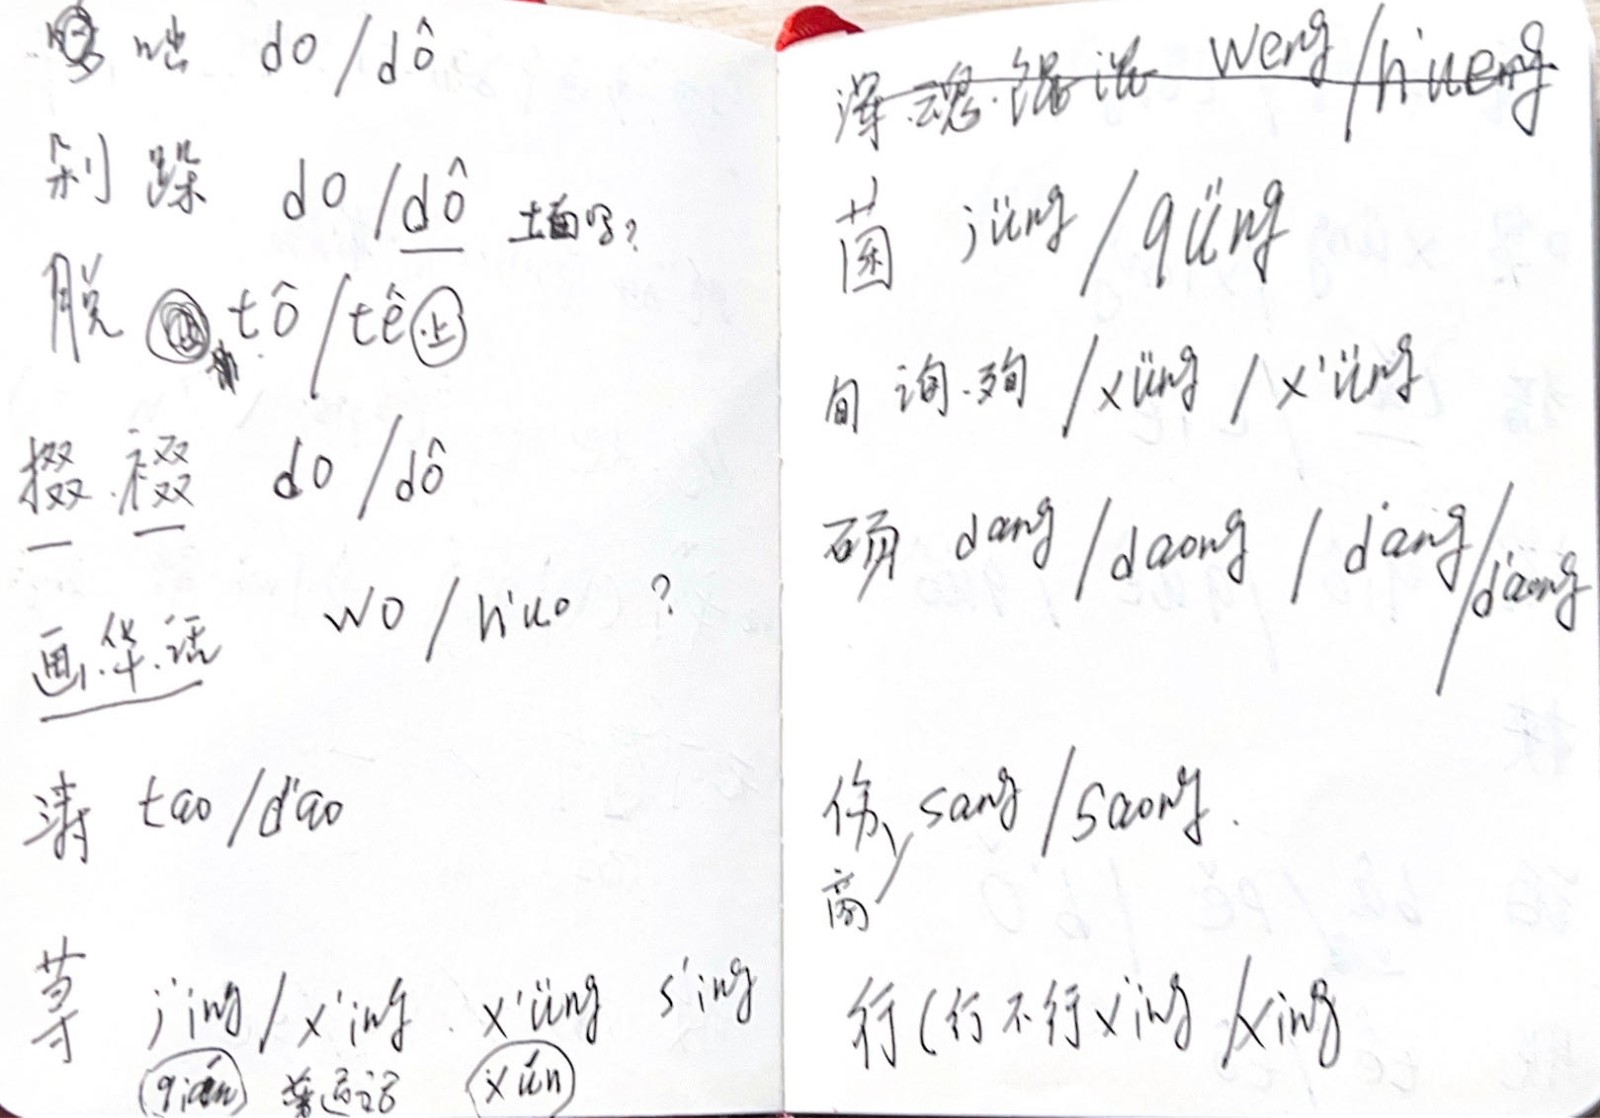 咄 do/dô
剁 跺 do/dô 土面吗?
脱 tô/tê 上
掇.裰 do/dô
画.华.话 wo/h'uo ?
涛 tao/d'ao
荨 j'ing/x'ing . x'üng s'ing
(qián) 普通话 (xún)
浑.魂.馄 混 weng/h'ueng
菌 jüng/qüng
旬 询.殉 /xüng / x'üng
砀 dang/daong / d'ang/d'aong
伤、商 sang/saong.
行(行不行x'ing /xing